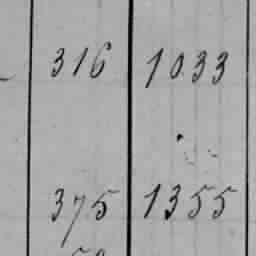 316 1033
375 1355